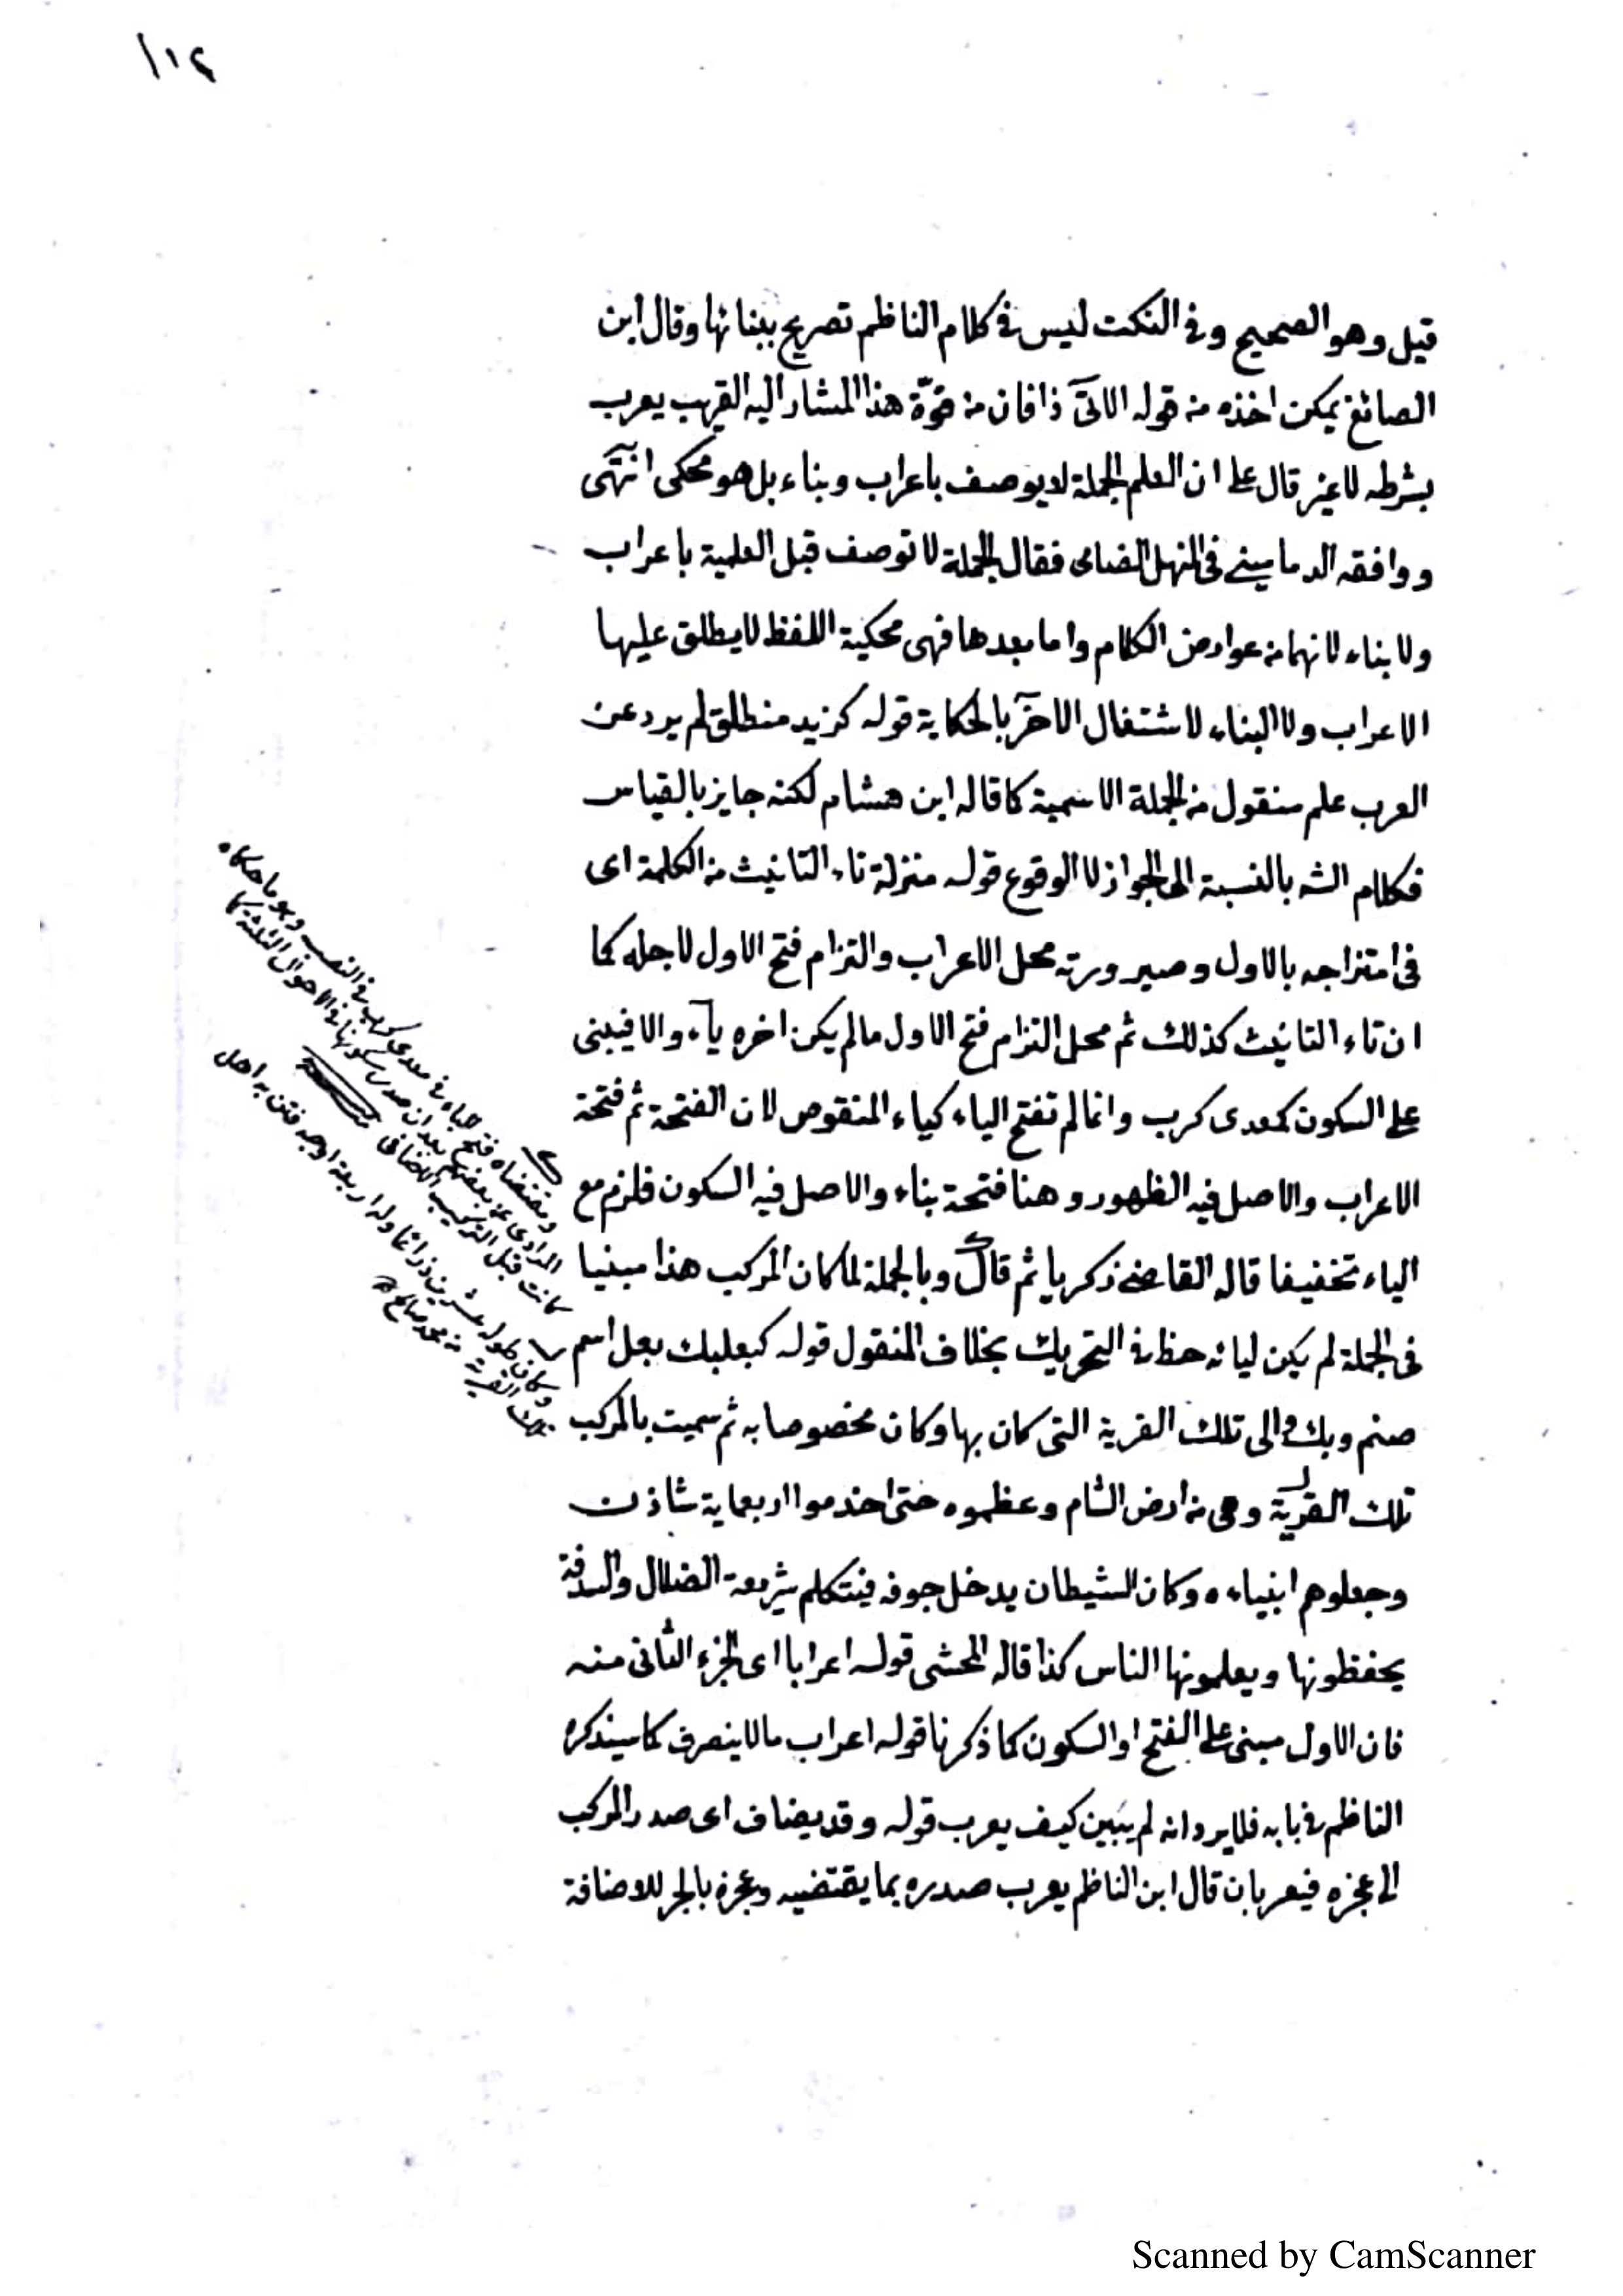 ١١٢
قيل وهو الصحيح وفى النكت ليس فى كلام الناظم تصريح ببنائها وقال ابن
الصائغ يمكن اخذه من قوله الآتى ذا فان من قوّة هذا المشار اليه القريب يعرب
بشرطه لا غير قال على ان العلم الجملة لا يوصف باعراب وبناء بل هو محكى انتهى
ووافقه الدمامينى فى المنهل الصافى فقال الجملة لا توصف قبل العلمية باعراب
ولا بناء لانهما من عوارض الكلام واما بعدها فهى محكية اللفظ لا يطلق عليها
الاعراب ولا البناء لاشتغال الآخر بالحكاية قوله كزيد منطلق لم يرد عن
العرب علم منقول من الجملة الاسمية كما قاله ابن هشام لكنه جايز بالقياس
فكلام الشه بالنسبة الى الجواز لا الوقوع قوله منزلة تاء التانيث من الكلمة اى
فى امتزاجه بالاول وصيرورته محل الاعراب والتزام فتح الاول لاجله كما
ان تاء التانيث كذلك ثم محل التزام فتح الاول ما لم يكن اخره ياء والا فيبنى
على السكون كمعدى كرب وانما لم تفتح الياء كياء المنقوص لان الفتحة ثم فتحة
الاعراب والاصل فيه الظهور وهنا فتحة بناء والاصل فيه السكون فلزم مع
الياء تخفيفا قاله القاضى زكريا ثم قال وبالجملة لما كان المركب هذا مبنيا
فى الجملة لم يكن ليائه حظ فى التحريك بخلاف المنقول قوله كبعلبك بعل اسم
صنم وبك والى تلك القرية التى كان بها وكان مخصوصا به ثم سميت بالمركب
تلك القرية وهى من ارض الشام وعظموه حتى اخدموا اربعماية شاذن
وجعلوهم انبياءه وكان الشيطان يدخل جوفه فيتكلم بشريعة الضلال والسدفة
يحفظونها ويعلمونها الناس كذا قاله المحشى قوله اعرابا اى الجزء الثانى منه
فان الاول مبنى على الفتح او السكون كما ذكرنا قوله اعراب ما لا ينصرف كما سيذكره
الناظم فى بابه فلا يرد انه لم يبين كيف يعرب قوله وقد يضاف اى صدر المركب
الى عجزه فيعربان قال ابن الناظم يعرب صدره بما يقتضيه وعجزه بالجر للاضافة
ومقتضاه فتح الياء فى معدى كرب فى النصب وهو ما حكاه
المرادى عن بعضهم بعد ان صدر سكونها فى الاحوال الثلثة كما
كانت قبل التركيب الاضافى
وكان طوله عشرين ذراعا وله اربعة اوجه فتن به اهل
تلك القرية من محمد صالح
Scanned by CamScanner